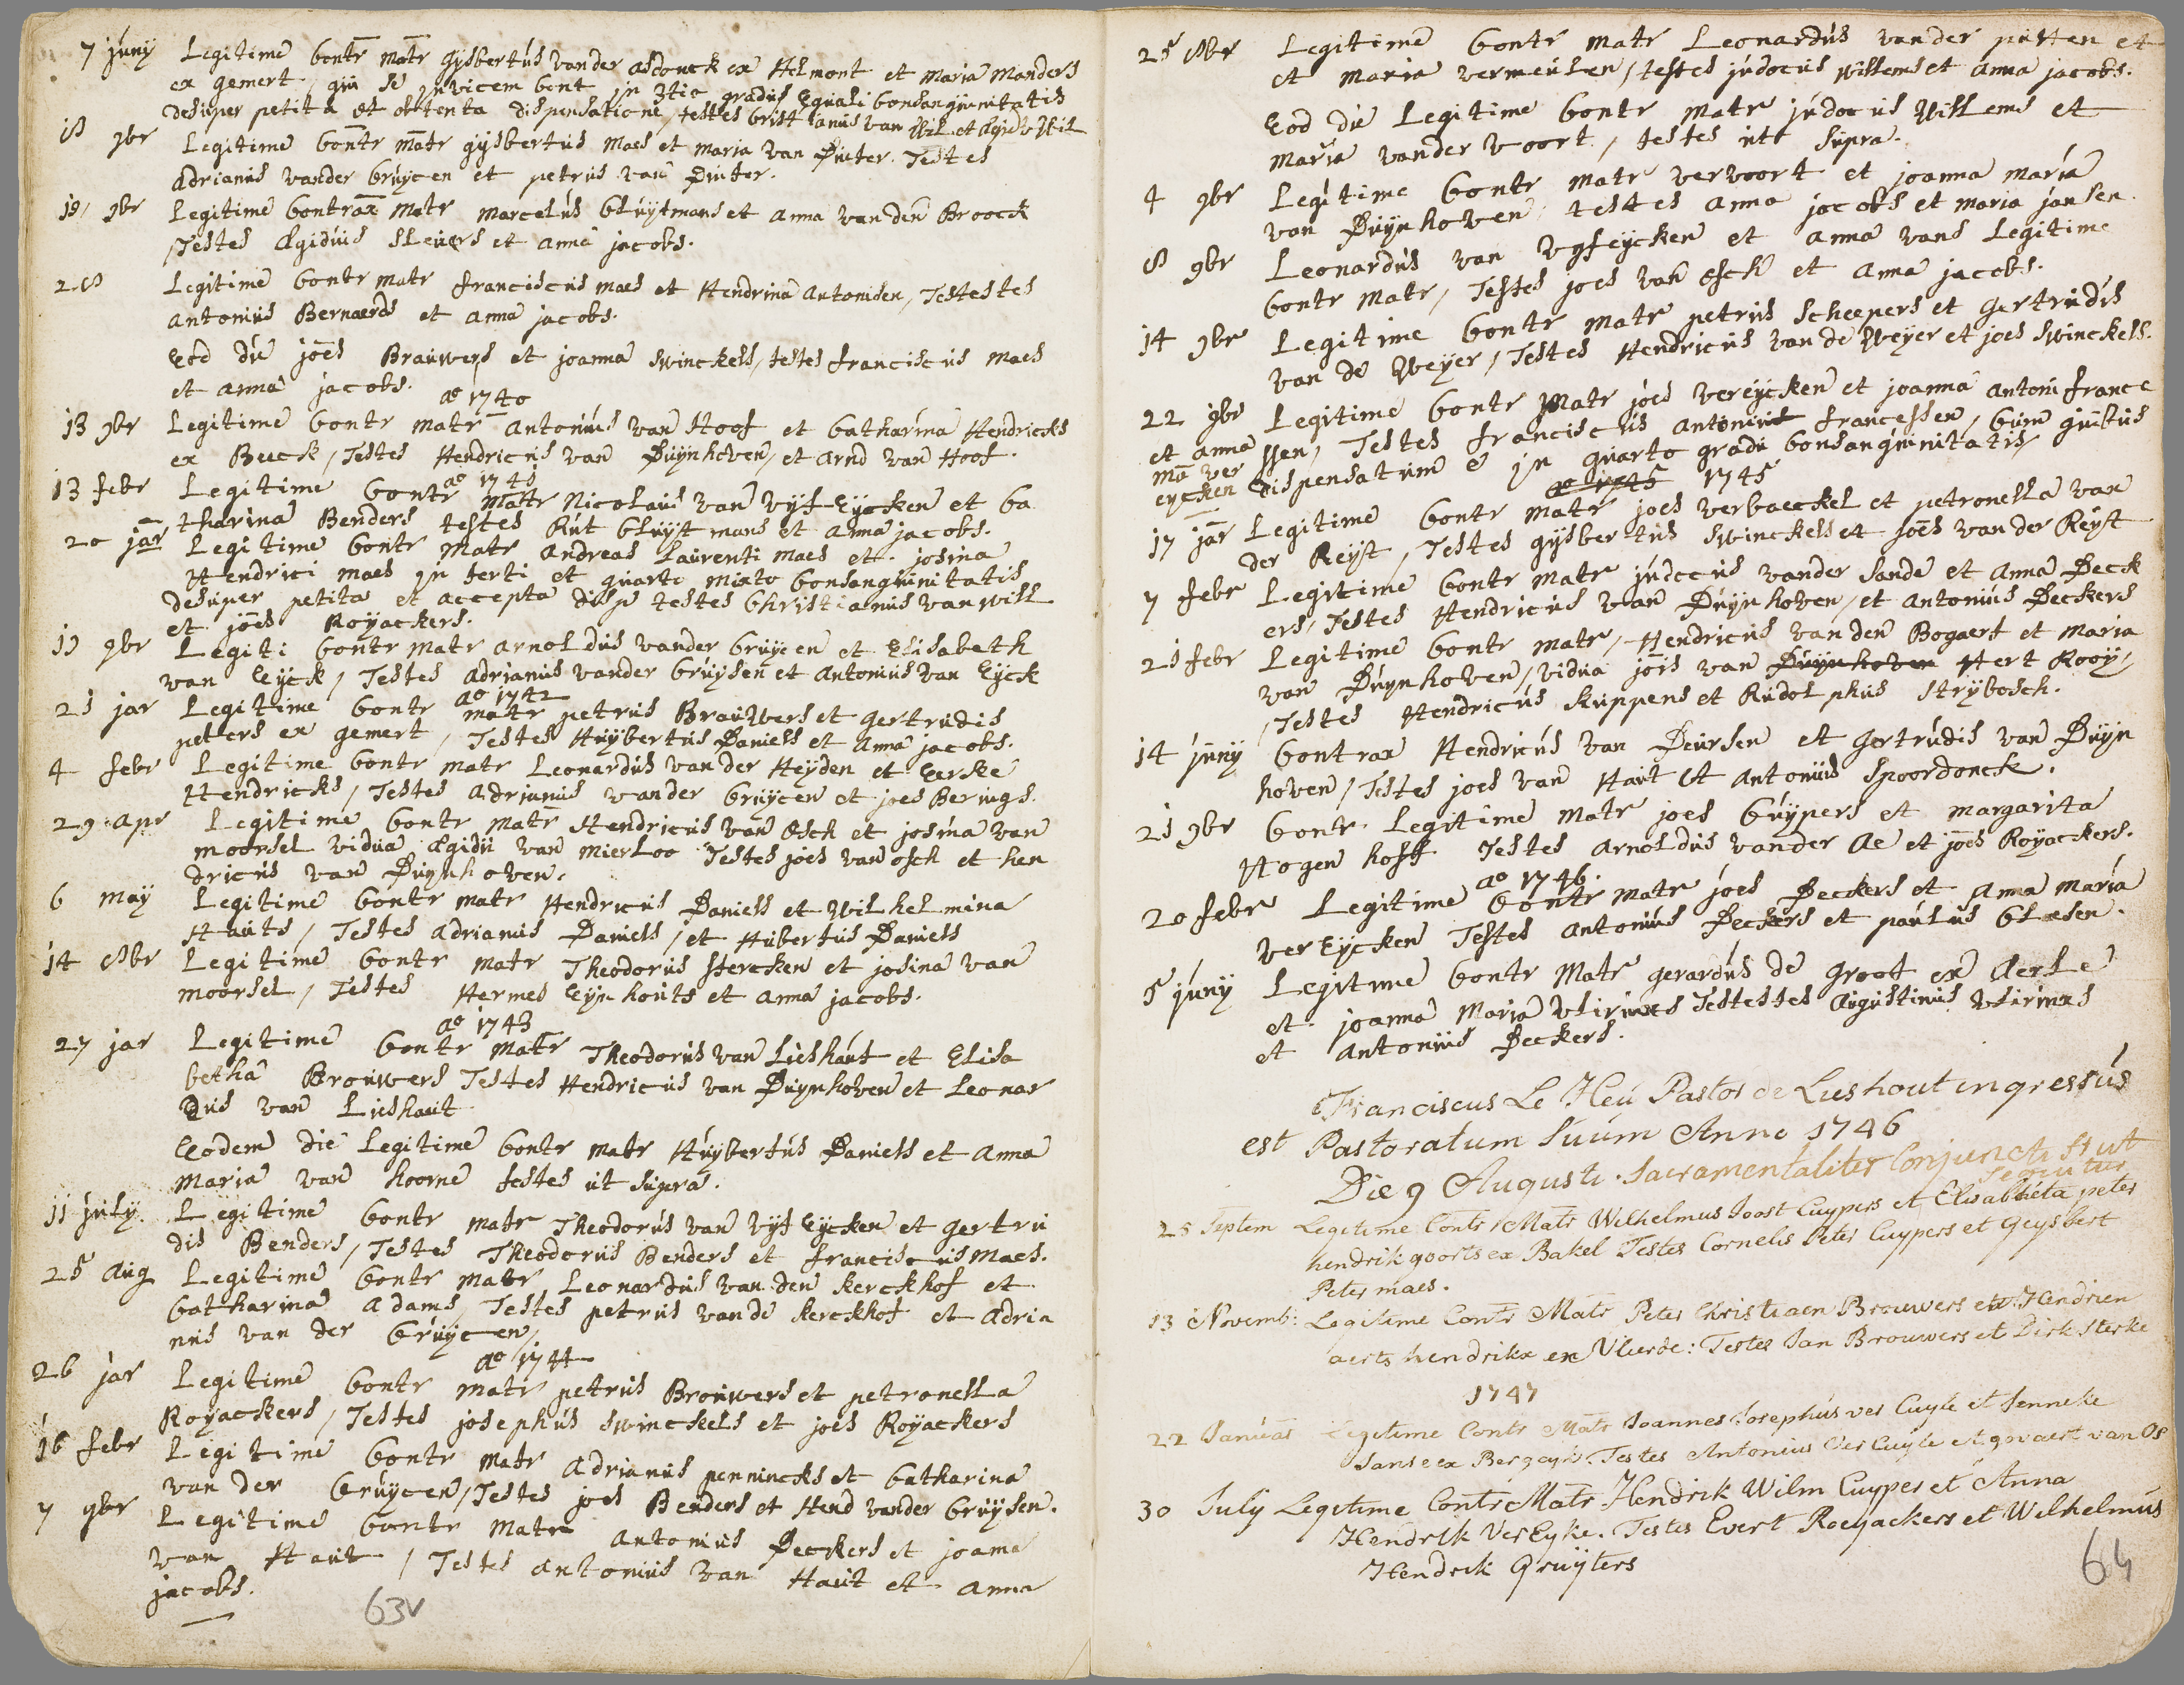 7 juny Legitime Contr matr gysbertus vander asdonck ex Helmont et maria manders
ex gemert, qui se invicem cont in 3tio gradus Equali Consanguinitatis
desuper petita et obtenta dispensatione, testes Crist ianus van Wil et
18 9br Legitime Contr matr gysbertus maes et maria van Dinter. Testes
Adrianus vander Cruycen et petrus van Dinter.
19 9br Legitime Contrax Matr marcelus Cluytmans et anna van den Broock
Testes Ægidius Sleuers et anna jacobs.
28 Legitime Contr matr franciscus maes et Hendrina antonisen, Testestes
Antonius Bernaerds et anna jacobs.
Eod die joēs Brauwers et joanna swinckels, testes franciscus maes
et anna jacobs.
a° 1740
13 9br Legitime Contr matr Antonius van Hoof et Catharina Hendricks
ex Beeck, Testes Hendricus van Duynhoven, et Arnd van Hoof.
a° 1741
13 febr Legitime Contr Matr Nicolaus van Vyf-Eycken et Ca
tharina Benders testes Rut Cluytmans et anna jacobs.
20 jar Legitime Contr Matr Andreas Laurenti maes et josina
Hendrici maes in terti et quarto mixto Consanguinitatis
desuper petita et accepta disp testes Christianus van will
et joēs Royackers.
19 9br Legiti Contr matr arnoldus vander Cruycen et Elisabeth
van Eyck, Testes Adrianus vander Cruysen et Antonius van Eyck
a° 1742
21 jar Legitime Contr matr petrus Brauwers et gertrudis
peters ex gemert, Testes Huybertus Daniels et Anna jacobs.
4 febr Legitime Contr matr Leonardus van der Heyden et Eerske
Hendricks, Testes Adrianus vander Cruycen et joes Berings.
29 Apr Legitime Contr matr Hendricus van Osch et josina van
moorsel vidua Ægidii van mierloo Testes joēs van osch et hen
dricus van Duynhoven.
6 may Legitime Contr matr Hendricus Daniels et Wilhelmina
Hauts, Testes Adrianus Daniels, et Hubertus Daniels
14 8br Legitime Contr matr Theodorus Stercken et josina van
moorsel, Testes Hermes Eynhouts et Anna jacobs.
a° 1743
27 jar Legitime Contr Matr Theodorus van Lieshaut et Elisa
betha Brouwers Testes Hendricus van Duynhoven et Leonar
dus van Lieshaut
Eodem die Legitime Contr matr Huybertus Daniels et Anna
Maria van hoorne testes ut supra.
11 july Legitime Contr matr Theodorus van Vyf Eycken et gertru
dis Benders, Testes Theodorus Benders et franciscus Maes.
25 aug Legitime Contr matr Leonardus van den kerckhof et
Catharina Adams Testes petrus van de kerckhof et Adria
nus van der Cruycen,
a° 1744
26 jar Legitime Contr matr petrus Brouwers et petronella
Royackers, Testes josephus swinckels et joes Royackers
16 febr Legitime Contr matr Adrianus pennincks et Catharina
van der Cruycen, Testes joes Benders et Hend vander Cruysen.
7 9br Legitime Contr Matr Antonius Deckers et joanna
van Haut, Testes Antonius van Haut et anna
jacobs.
63v
25 8br Legitime Contr matr Leonardus vander putten et
et maria vermeulen, testes judocus willems et anna jacobs.
Eod die Legitime Contr matr judocus willems et
maria vander voort, testes utt supra.
4 9br Legitime Contr matr vervoort et joanna maria
van Duynhoven testes anna jacobs et maria jansen.
8 9br Leonardus van Vyfeycken et anna vans Legitime
Contr matr, Testes joes van Osch et anna jacobs.
14 9br Legitime Contr matr petrus Scheepers et gertrudis
van de Weyer, Testes Hendricus van de Weyer et joes Swinckels.
22 9br Legitime Contr Matr joes vereycken et joanna Antoni france
ssen, Testes franciscus Antonius francessen, Cum
et anna
ma ver
eycken
dispensatum e in quarto gradu Consanguinitatis,
a° 1745 1745
17 jar Legitime Contr matr joes verbaeckel et petronella van
der Reyst, Testes gysbertus Swinckels et joēs van der Reyst
7 febr Legitime Contr matr judocus vander Sande et Anna Deck
ers, Testes Hendricus van Duynhoven, et Antonius Deckers
21 febr Legitime Contr matr, Hendricus van den Bogaert et maria
van Duynhoven, vidua jōis van Duynhoven Hert Rooy,
Testes Hendricus kuppens et Rudolphus Strybosch.
14 juny Contrax Hendricus van Deursen et gertrudis van Duyn
hoven, Testes joes van Haut et Antonius Spoordonck.
21 9br Contr Legitime Matr joes Cuypers et margarita
Hogen hoff Testes arnoldus vander Ae et joēs Royackers.
a° 1746.
20 febr Legitime Contr matr joes Deckers et Anna maria
verEycken Testes Antonius Deckers et paulus Claesen.
5 juny Legitime Contr Matr gerardus de groot ex Aerle
et joanna Maria Testestes Augustinus
et Antonius Deckers.
Franciscus Le Heu Pastor de Lieshout ingressus
est Pastoratum suum Anno 1746
Die 9 Augusti. Sacramentaliter Conjuncti st ut
sequitur
25 Septem Legitime Contr Matr Wilhelmus Joost Cuypers et Elisabheta peter
hendrik goorts ex Bakel Testes Cornelis Peter Cuypers et Geysbert
Peter maes.
13 Novemb: Legitime Contr Matr Peter Christiaen Brouwers et Hendrien
aerts hendrikx ex Vlierde: Testes Jan Brouwers et Dirk Sterke
1747
22 Januar Legitime Contr Matr Joannes Josephus ver Cuyle et Jenneke
Janse ex Bergeyk. Testes Antonius Ver Cuyle et govaert van Os
30 July Legitime Contr Matr Hendrik Wilm Cuyper et Anna
Hendrik VerEyke. Testes Evert Roeyackers et Wilhelmus
Hendrik Gruyters
64